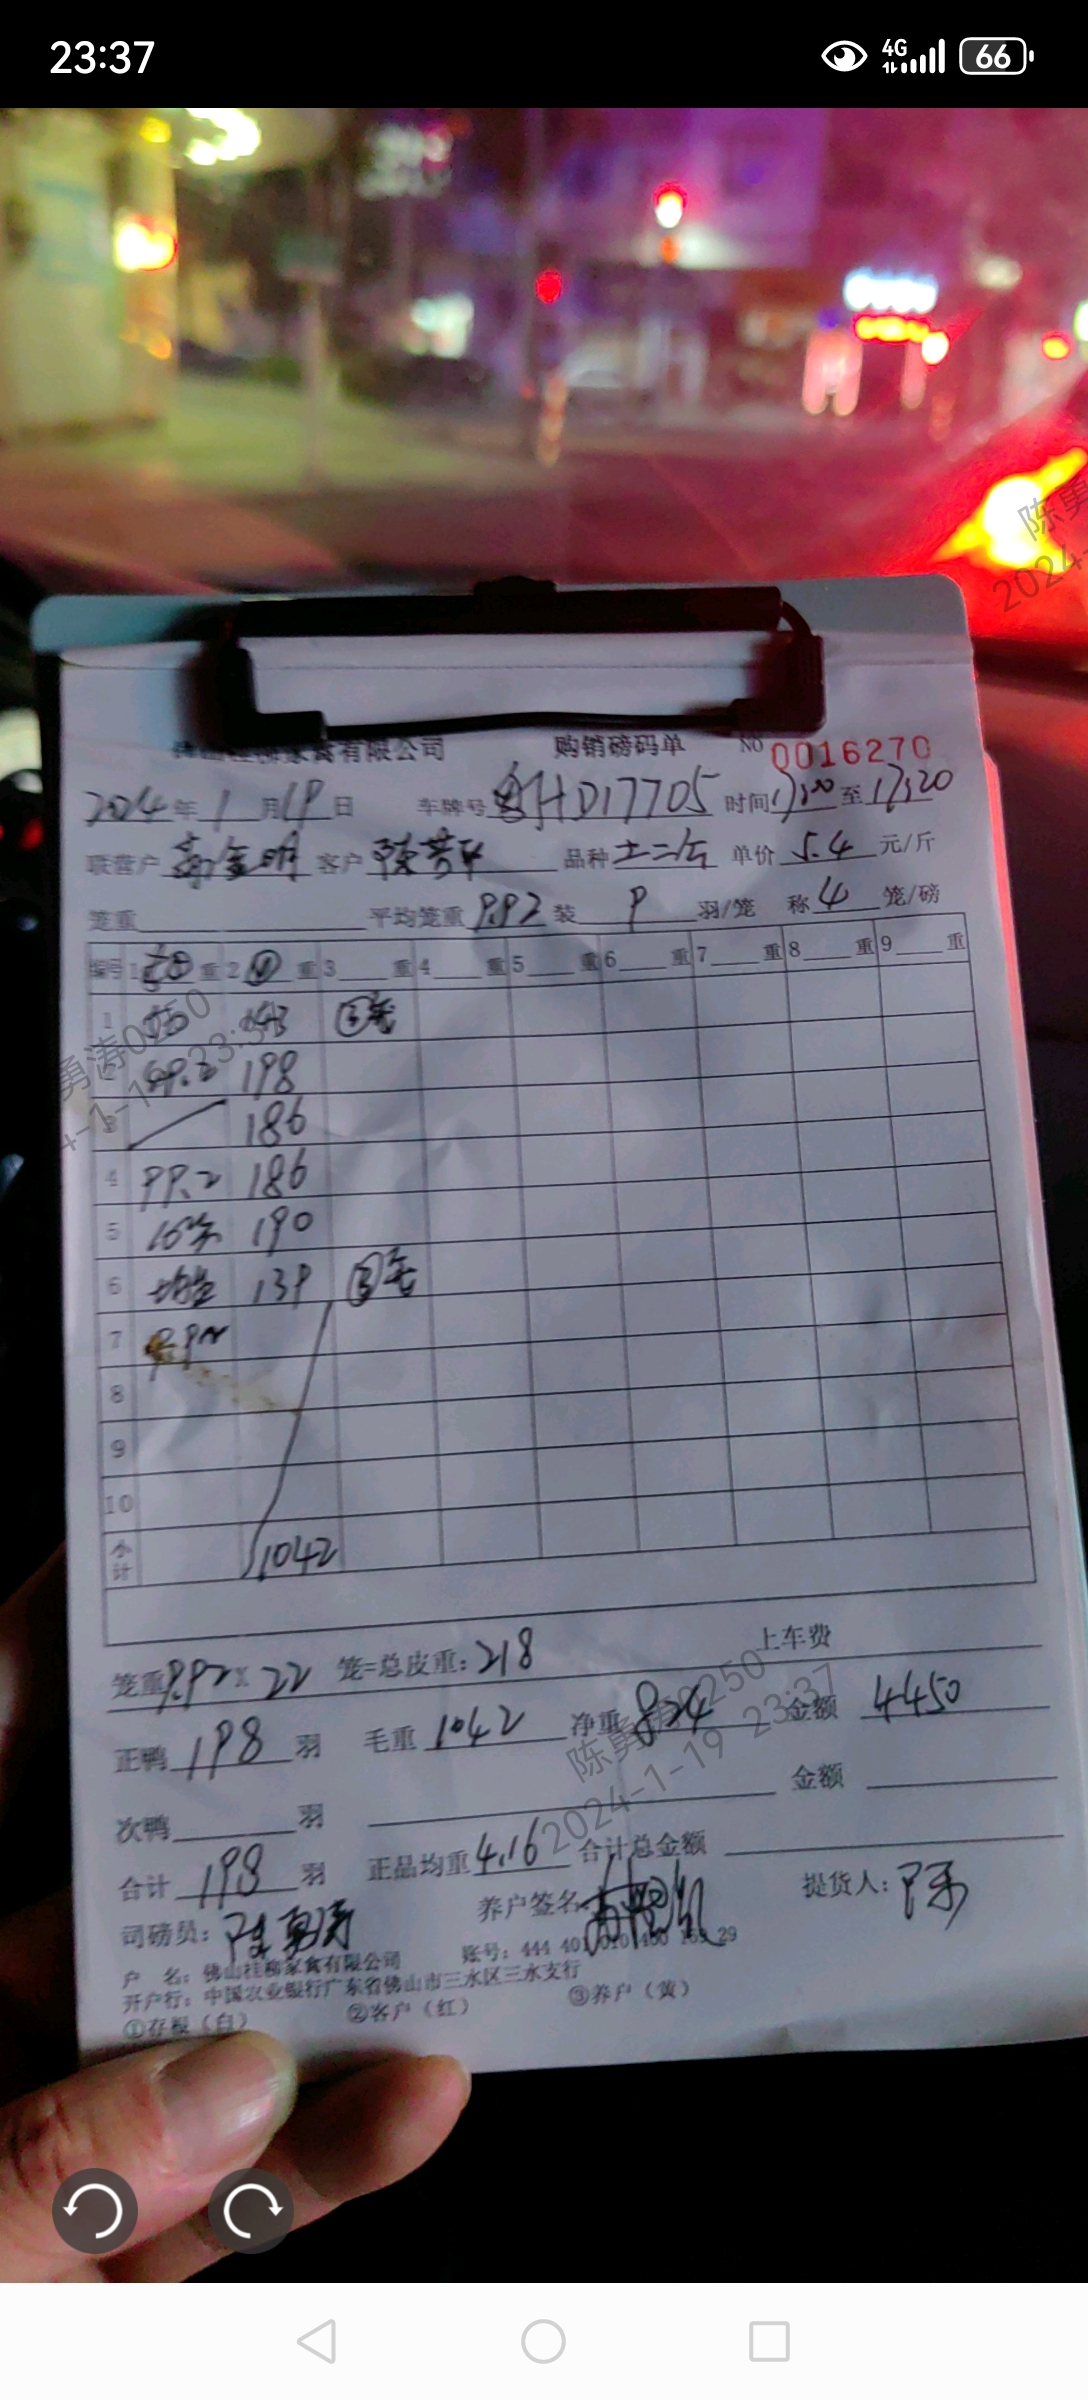 23:37
4G 66
家禽有限公司 购销磅码单 NO 0016270
2024年1月19日 车牌号 粤HD17705 时间17:00至17:20
联营户 客户 陈芳 品种 土二 单价 5.4 元/斤
笼重 平均笼重 9.92 装 9 羽/笼 称 4 笼/磅
编号 1 重 2 重 3 重 4 重 5 重 6 重 7 重 8 重 9 重
1 143
198
3 186
4 99.2 186
5 190
6 139
7
8
9
10
小计 1042
笼重9.92 x 22 笼=总皮重:218 上车费
正鸭 198 羽 毛重 1042 净重 824 金额 4450
次鸭 羽 金额
合计 198 羽 正品均重 4.16 合计总金额
司磅员: 陈勇涛 养户签名 提货人: 陈
户 名: 佛山桂柳家禽有限公司 账号: 444 401 29
开户行: 中国农业银行广东省佛山市三水区三水支行
①存根(白) ②客户(红) ③养户(黄)
陈勇
2024-
勇涛0250
23:3
陈勇涛0250
2024-1-19 23:37